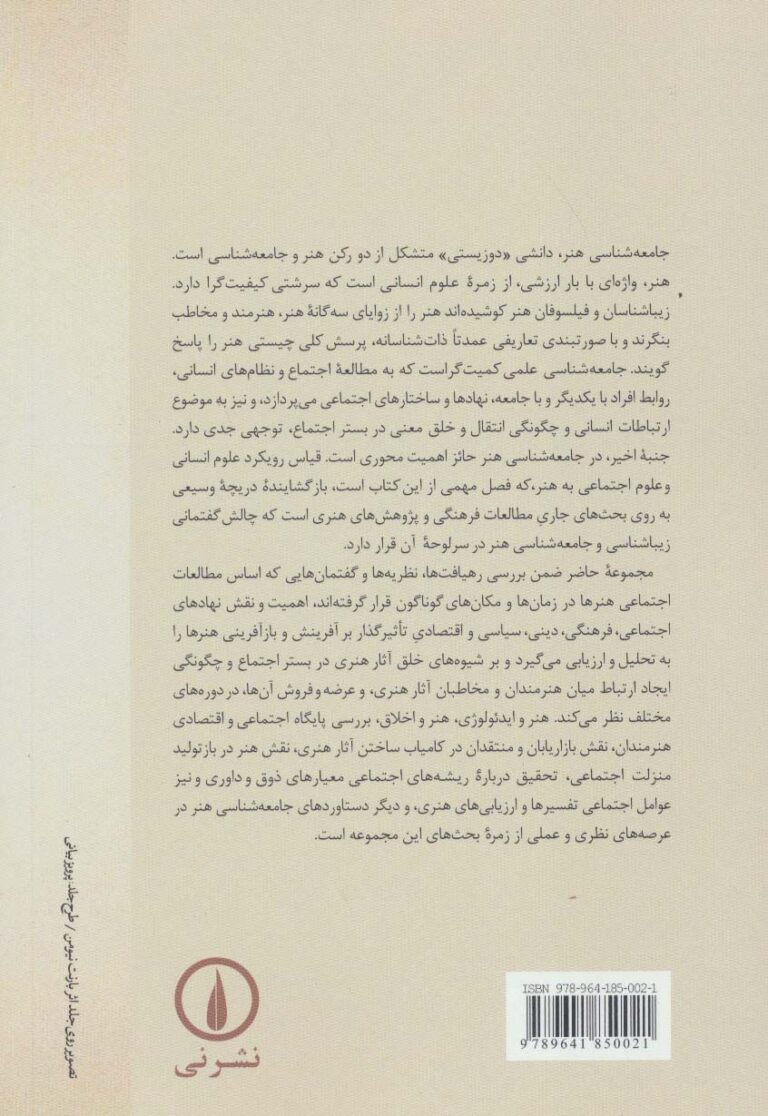 جامعه‌شناسی هنر، دانشی «دوزیستی» متشکل از دو رکن هنر و جامعه‌شناسی است.
هنر، واژه‌ای با بار ارزشی، از زمرهٔ علوم انسانی است که سرشتی کیفیت‌گرا دارد.
زیباشناسان و فیلسوفان هنر کوشیده‌اند هنر را از زوایای سه‌گانهٔ هنر، هنرمند و مخاطب
بنگرند و با صورتبندی تعاریفی عمدتاً ذات‌شناسانه، پرسش کلی چیستی هنر را پاسخ
گویند. جامعه‌شناسی علمی کمیت‌گراست که به مطالعهٔ اجتماع و نظام‌های انسانی،
روابط افراد با یکدیگر و با جامعه، نهادها و ساختارهای اجتماعی می‌پردازد، و نیز به موضوع
ارتباطات انسانی و چگونگی انتقال و خلق معنی در بستر اجتماع، توجهی جدی دارد.
جنبهٔ اخیر، در جامعه‌شناسی هنر حائز اهمیت محوری است. قیاس رویکرد علوم انسانی
و علوم اجتماعی به هنر،که فصل مهمی از این کتاب است، بازگشایندهٔ دریچهٔ وسیعی
به روی بحث‌های جاریِ مطالعات فرهنگی و پژوهش‌های هنری است که چالش گفتمانی
زیباشناسی و جامعه‌شناسی هنر در سرلوحهٔ آن قرار دارد.
مجموعهٔ حاضر ضمن بررسی رهیافت‌ها، نظریه‌ها و گفتمان‌هایی که اساس مطالعات
اجتماعی هنرها در زمان‌ها و مکان‌های گوناگون قرار گرفته‌اند، اهمیت و نقش نهادهای
اجتماعی، فرهنگی، دینی، سیاسی و اقتصادیِ تأثیرگذار بر آفرینش و بازآفرینی هنرها را
به تحلیل و ارزیابی می‌گیرد و بر شیوه‌های خلق آثار هنری در بستر اجتماع و چگونگی
ایجاد ارتباط میان هنرمندان و مخاطبان آثار هنری، و عرضه و فروش آن‌ها، در دوره‌های
مختلف نظر می‌کند. هنر و ایدئولوژی، هنر و اخلاق، بررسی پایگاه اجتماعی و اقتصادی
هنرمندان، نقش بازاریابان و منتقدان در کامیاب ساختن آثار هنری، نقش هنر در بازتولید
منزلت اجتماعی، تحقیق دربارهٔ ریشه‌های اجتماعی معیارهای ذوق و داوری و نیز
عوامل اجتماعی تفسیرها و ارزیابی‌های هنری، و دیگر دستاوردهای جامعه‌شناسی هنر در
عرصه‌های نظری و عملی از زمرهٔ بحث‌های این مجموعه است.
تصویر روی جلد اثر بارنت نیومن / طرح جلد: پرویز بیانی
نشر نی
ISBN 978-964-185-002-1
9789641850021